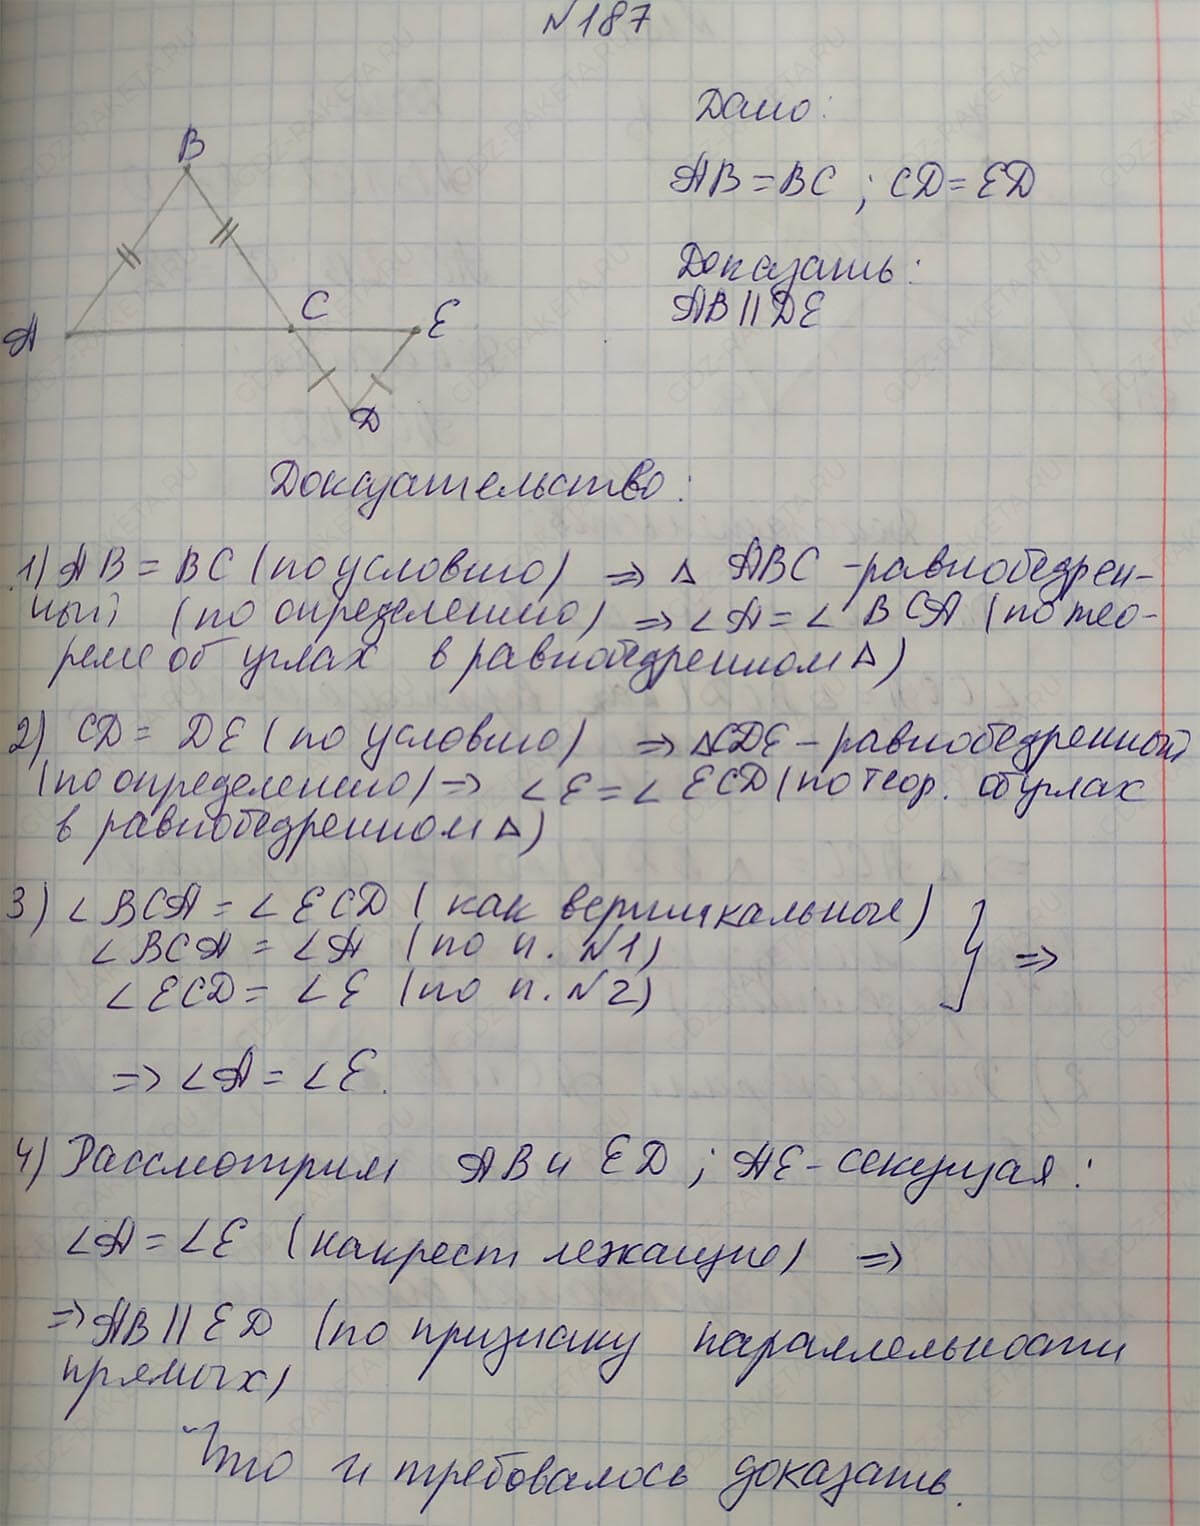 №187
Дано:
AB=BC ; CD=ED
Доказать:
AB||DE
B
A
C
E
D
Доказательство:
1) AB = BC (по условию) => Δ ABC -равнобедрен-
ный (по определению) => ∠A=∠ BCA (по тео-
реме об углах в равнобедренном Δ)
2) CD= DE (по условию) => ΔCDE - равнобедренный
(по определению) => ∠E=∠ ECD (по теор. об углах
в равнобедренном Δ)
3) ∠BCA = ∠ECD ( как вертикальные)
∠BCA = ∠A (по п. №1)
∠ECD= ∠E (по п. №2)
} =>
=> ∠A= ∠E.
4) Рассмотрим AB и ED ; AE- секущая:
∠A=∠E (накрест лежащие) =>
=> AB || ED (по признаку параллельности
прямых)
Что и требовалось доказать.
GDZ-RAKETA.RU